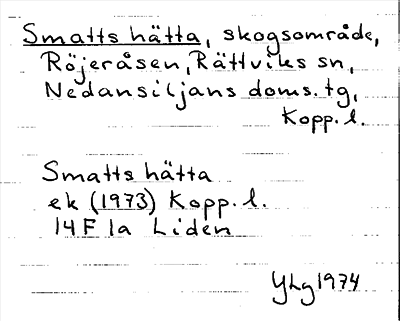 Smatts hätta, skogsområde,
Röjeråsen, Rättviks sn,
Nedansiljans doms. tg,
Kopp. l.
Smatts hätta
ek (1973) Kopp. l.
14F 1a Liden
YLg 1974